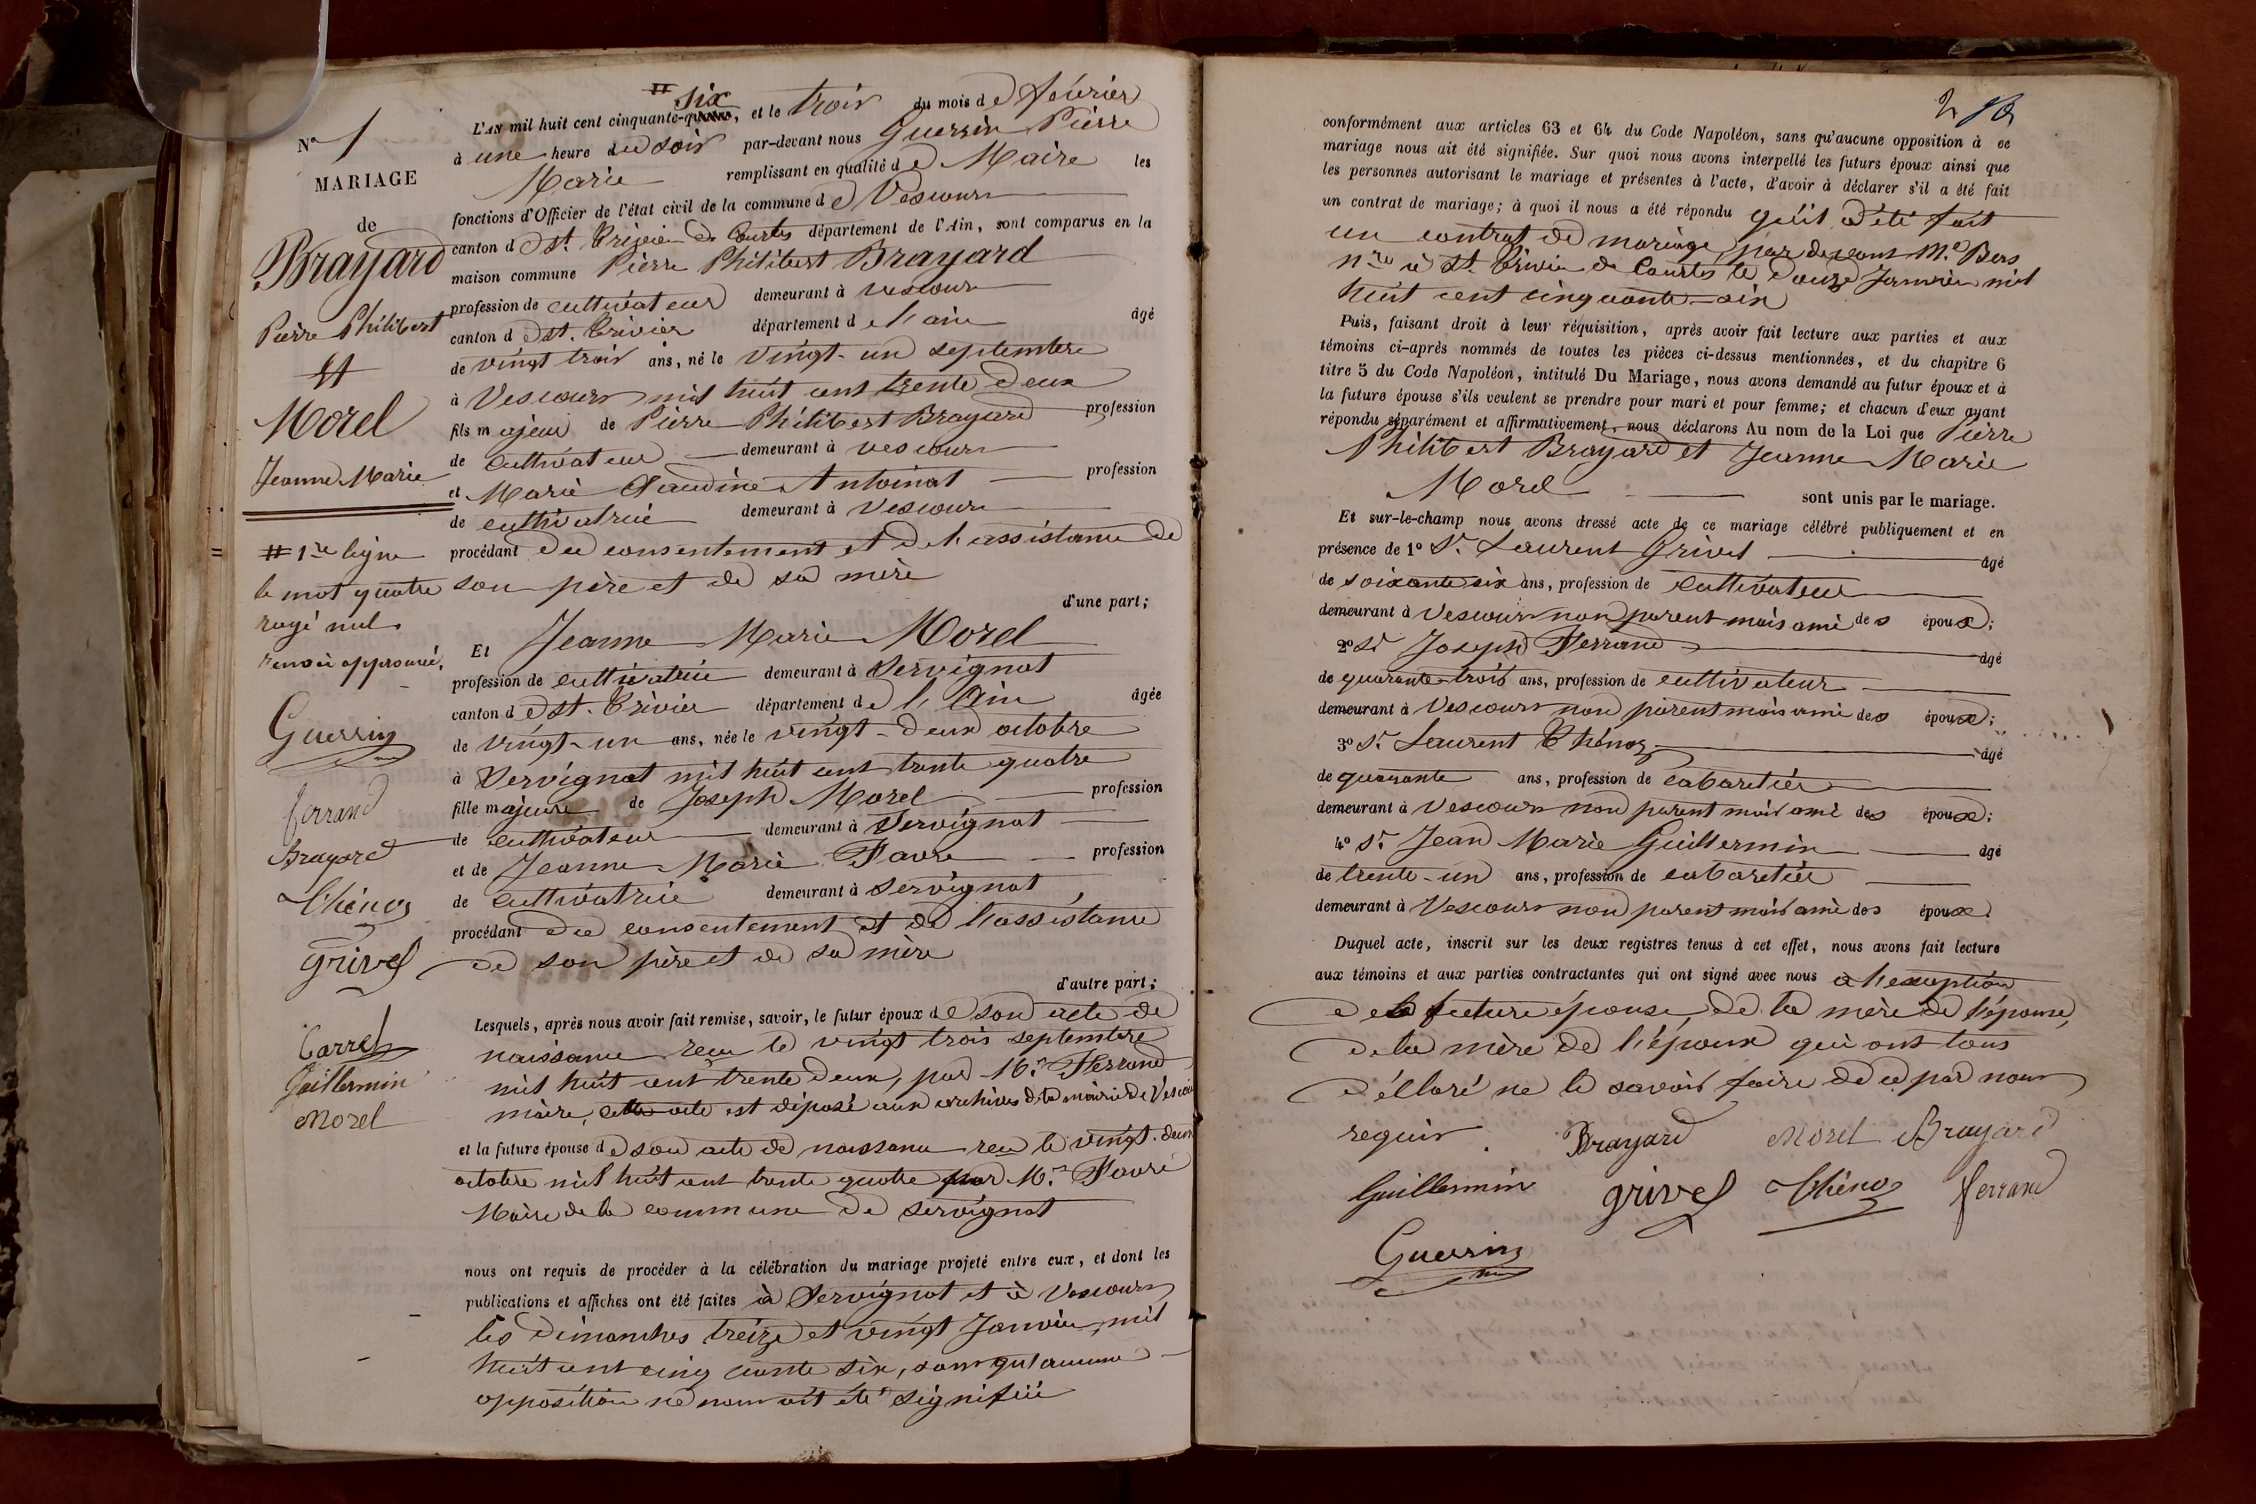 N° 1
MARIAGE
de
Brayard
Pierre Philibert
Et
Morel
Jeanne Marie
# 1re ligne
le mot quatre
rayé nul
renvoi approuvé.
Guerrin
ferrand
Brayard
Thénoz
grivel
Carrel
Guillermin
Morel
# six
L'AN mil huit cent cinquante-quatre, et le trois du mois de février
à une heure du soir par-devant nous Guerrin Pierre
Marie remplissant en qualité de Maire les
fonctions d'Officier de l'état civil de la commune de Vescours
canton de St. Trivier de Courtes département de l'Ain, sont comparus en la
maison commune Pierre Philibert Brayard
profession de cultivateur demeurant à Vescours
canton de St. Trivier département de l'ain âgé
de vingt trois ans, né le vingt-un septembre
à Vescours mil huit cent trente deux
fils majeur de Pierre Philibert Brayard profession
de cultivateur demeurant à vescours
et Marie Claudine Antoinat profession
de cultivatrice demeurant à Vescours
procédant du consentement et de l'assistance de
son père et de sa mère
d'une part;
Et Jeanne Marie Morel
profession de cultivatrice demeurant à Servignat
canton de St. Trivier département de l'Ain âgée
de vingt-un ans, née le vingt-deux octobre
à Servignat mil huit cent trente quatre
fille majeure de Joseph Morel profession
de cultivateur demeurant à Servignat
et de Jeanne Marie Favre profession
de cultivatrice demeurant à servignat
procédant du consentement et de l'assistance
de son père et de sa mère
d'autre part;
Lesquels, après nous avoir fait remise, savoir, le futur époux de son acte de
naissance reçu le vingt trois septembre
mil huit cent trente deux, par Mr. Ferrand
maire, cette acte est déposé aux archives de la mairie de Vescours
et la future épouse de son acte de naissance reçu le vingt-deux
octobre mil huit cent trente quatre par Mr. Favre
Maire de la commune de servignat
nous ont requis de procéder à la célébration du mariage projeté entre eux, et dont les
publications et affiches ont été faites à Servignat et à Vescours
les dimanches treize et vingt Janvier mil
huit cent cinq cuante six, sans qu'aucune
opposition ne nous ait été signifiée
2
conformément aux articles 63 et 64 du Code Napoléon, sans qu'aucune opposition à ce
mariage nous ait été signifiée. Sur quoi nous avons interpellé les futurs époux ainsi que
les personnes autorisant le mariage et présentes à l'acte, d'avoir à déclarer s'il a été fait
un contrat de mariage; à quoi il nous a été répondu qu'il a été fait
un contrat de mariage, par devant Me. Bers
nre à St. Trivier de Courtes le douze Janvier mil
huit cent cinquante-six
Puis, faisant droit à leur réquisition, après avoir fait lecture aux parties et aux
témoins ci-après nommés de toutes les pièces ci-dessus mentionnées, et du chapitre 6
titre 5 du Code Napoléon, intitulé Du Mariage, nous avons demandé au futur époux et à
la future épouse s'ils veulent se prendre pour mari et pour femme; et chacun d'eux ayant
répondu séparément et affirmativement, nous déclarons Au nom de la Loi que Pierre
Philibert Brayard et Jeanne Marie
Morel sont unis par le mariage.
Et sur-le-champ nous avons dressé acte de ce mariage célébré publiquement et en
présence de 1° Sr. Laurent Grivel âgé
de soixante six ans, profession de cultivateur
demeurant à Vescours non parent mais ami des époux;
2° Sr Joseph Ferrand âgé
de quarante-trois ans, profession de cultivateur
demeurant à Vescours non parent mais ami des époux;
3° Sr. Laurent Thénoz âgé
de quarante ans, profession de cabaretier
demeurant à Vescours non parent mais ami des époux;
4° Sr. Jean Marie Guillermin âgé
de trente-un ans, profession de cabaretier
demeurant à Vescours non parent mais ami des époux.
Duquel acte, inscrit sur les deux registres tenus à cet effet, nous avons fait lecture
aux témoins et aux parties contractantes qui ont signé avec nous a l'exception
de la future épouse, de la mère de l'épouse,
de la mère de l'époux qui ont tous
déclaré ne le savoir faire de ce par nous
requis.
Brayard Morel Brayard
Guillermin grivel Thénoz ferrand
Guerrin